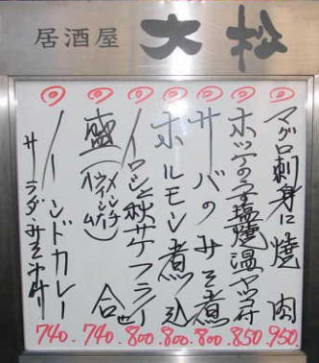 居酒屋 大松
マグロ刺身に焼肉 950.
ホッケの塩焼温 850.
サーバのみそ煮 800.
ホルモン煮込 800.
イワシと秋サケフライ 800.
盛合せ 740.
(メンチ ウインナー ハム)
ノーンドカレー サラダ・みそ汁付 740.